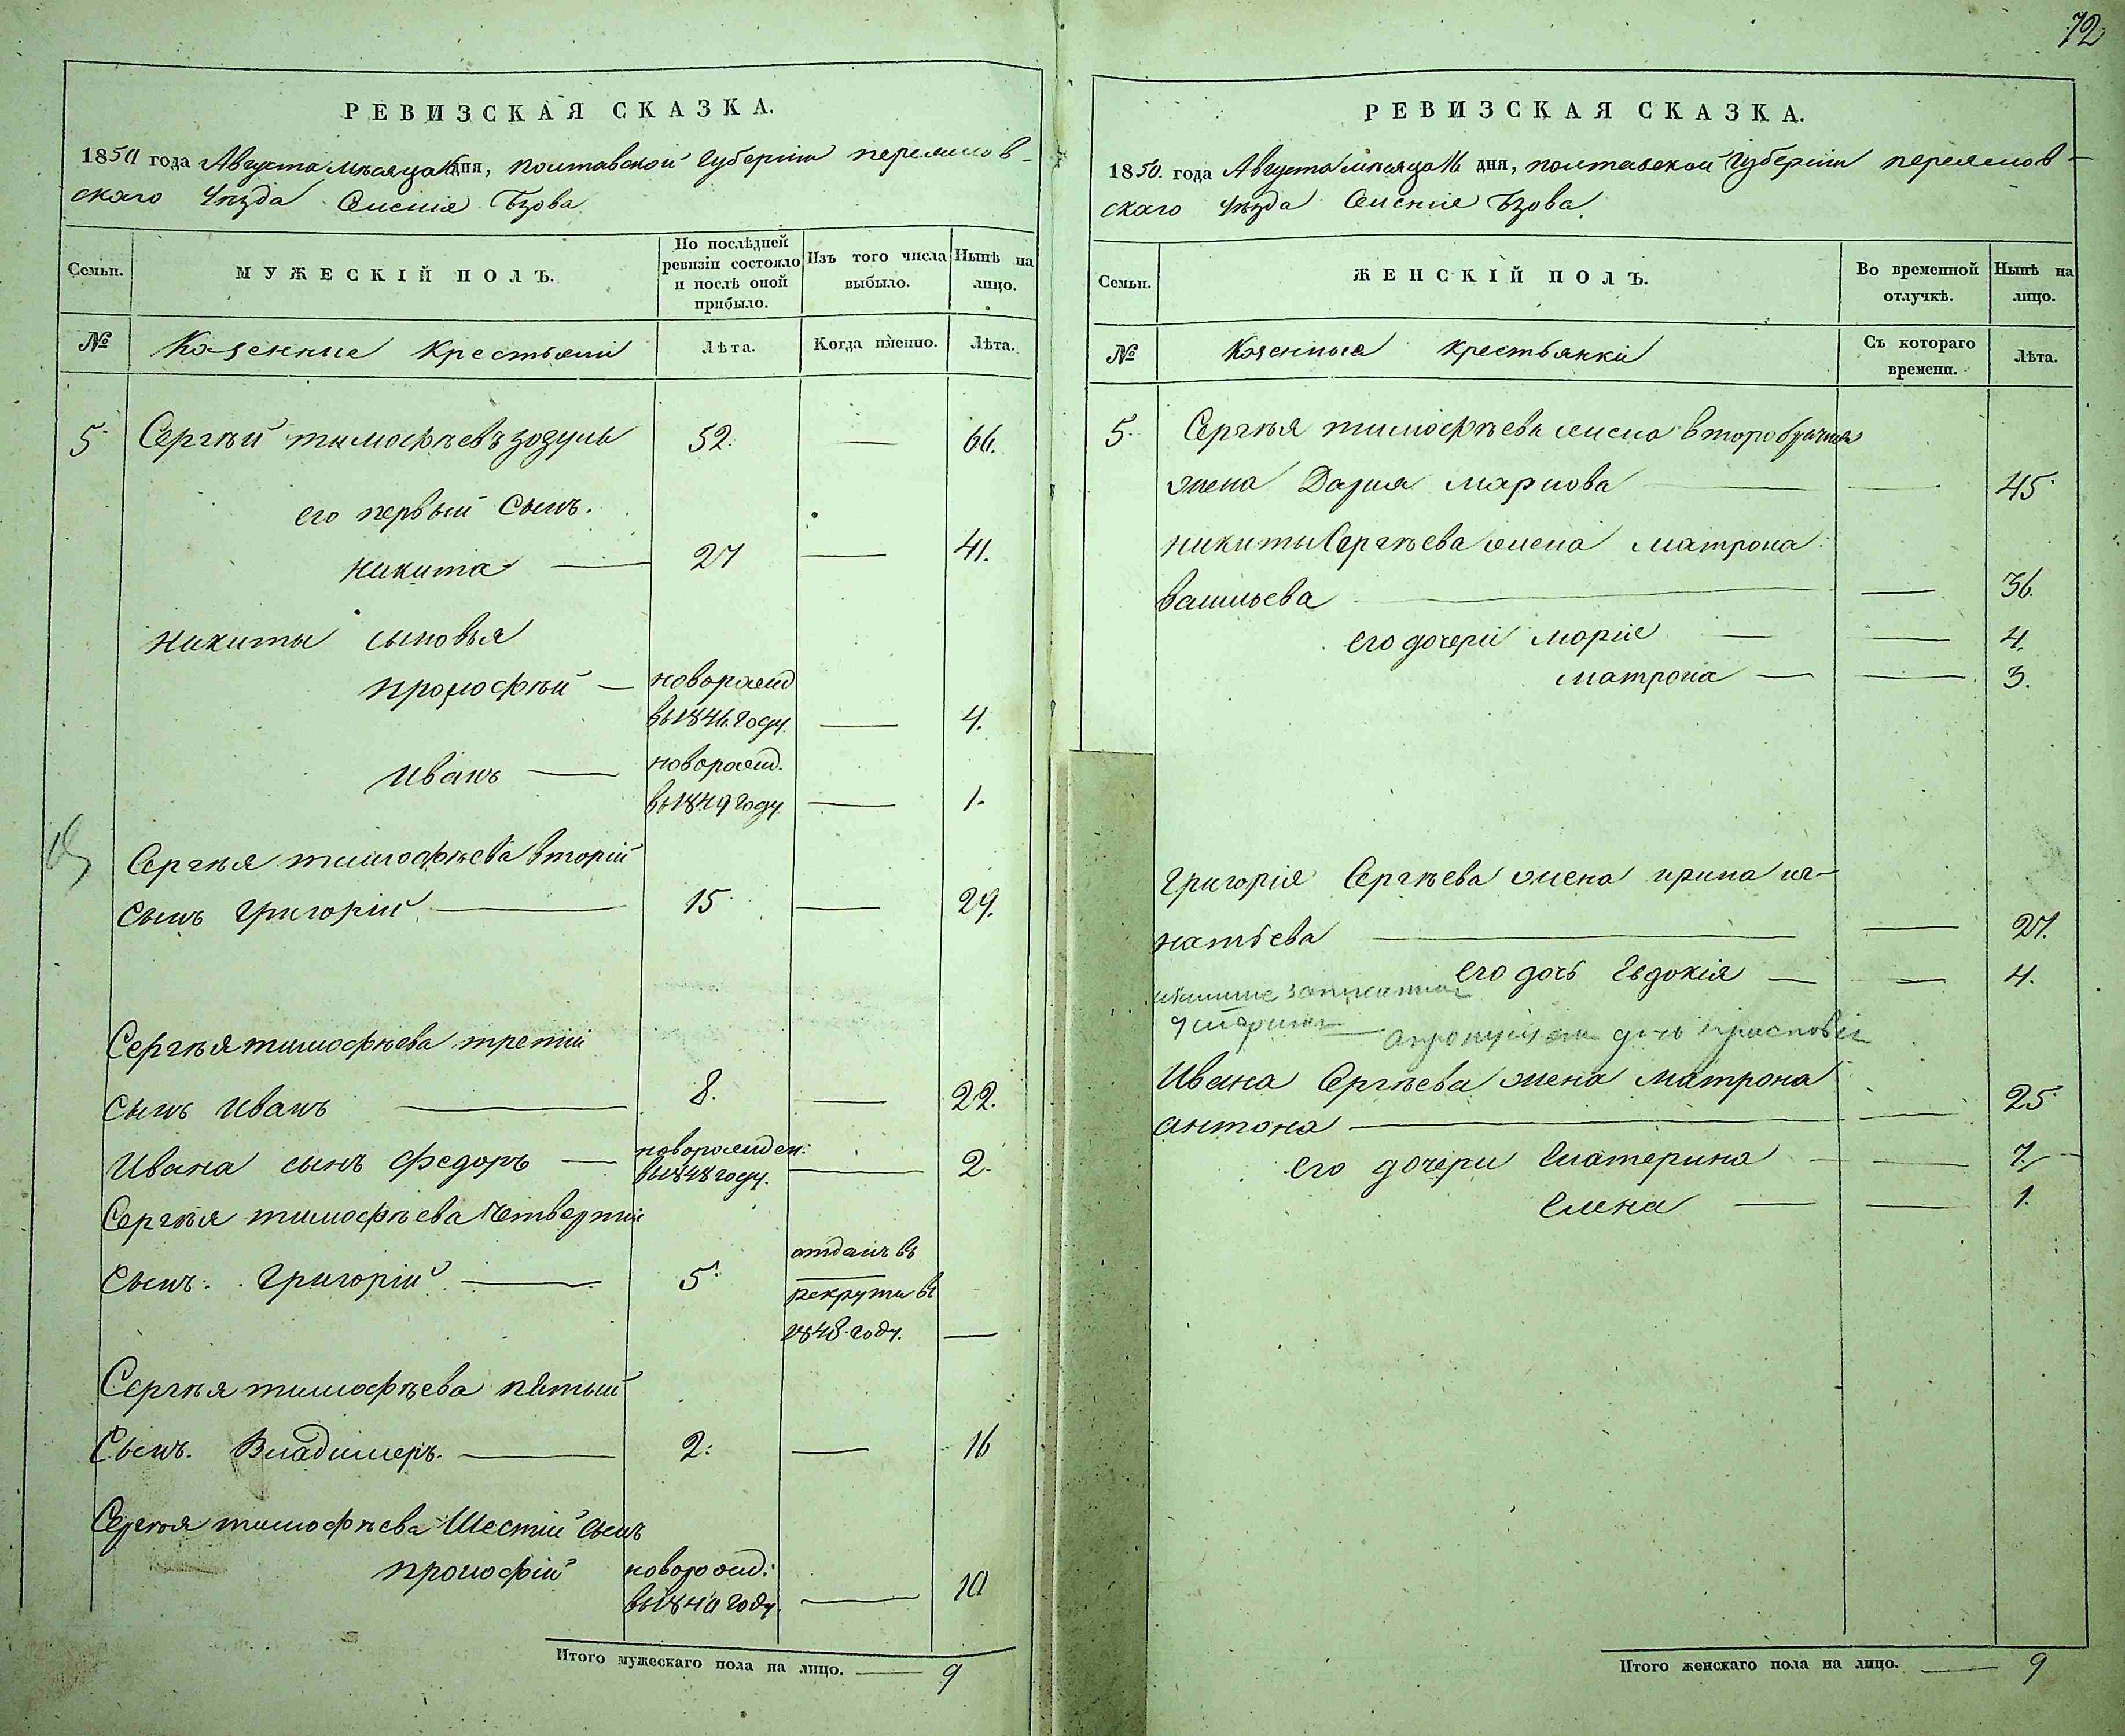 72
РЕВИЗСКАЯ СКАЗКА.
1850 года Августа мѣсяца 16 дня, полтавской Губерніи переяслов-
скаго уѣзда Селенія Бзова
Семьи.
МУЖЕСКІЙ ПОЛЪ.
По послѣдней
ревизіи состояло
и послѣ оной
прибыло.
Изъ того числа
выбыло.
Нынѣ на
лицо.
№
Казенные крестьяни
Лѣта.
Когда именно.
Лѣта.
5 Сергѣй тимофѣевъ зозуль 52. — 66.
его первый Сынъ.
никита — 27 — 41.
никиты сыновья
прокофѣй — новорожд
въ 1846. году. — 4.
иванъ — новорожд.
въ 1849 году — 1.
Сергѣя тимофѣева вторій
Сынъ григорій — 15 — 29.
Сергѣя тимофѣева третій
Сынъ иванъ — 8. — 22.
ивана сынъ федоръ — новорожден:
въ 1848 году. — 2.
Сергѣя тимофѣева Четвертій
Сынъ. григорій — 5 отданъ въ
рекруты въ
1848. году. —
Сергѣя тимофѣева пятый
Сынъ. Владимеръ. — 2: — 16
Сергѣя тимофѣева Шестій Сынъ
прокофій новорожд:
въ 1840 году. — 10
Итого мужескаго пола на лицо. — 9
РЕВИЗСКАЯ СКАЗКА.
1850. года Августа мѣсяца 16 дня, полтавской Губерніи переяслов-
скаго уѣзда Селенія Бзова.
Семьи.
ЖЕНСКІЙ ПОЛЪ.
Во временной
отлучкѣ.
Нынѣ на
лицо.
№
Казенныя крестьянки
Съ котораго
времени.
Лѣта.
5. Сергѣя тимофѣева жена второбрачная
жена Дария маркова — — 45
никиты Сергѣева жена матрона
васильева — — 36.
его дочери марія — — 4.
матрона — — 3.
григорія Сергѣева жена ирина иг-
натьева — — 27.
его дочь Евдокія — — 4.
дочь
Ивана Сергѣева жена матрона
антона — — 25
его дочери Екатерина — — 7.
Елена — — 1.
Итого женскаго пола на лицо. — 9